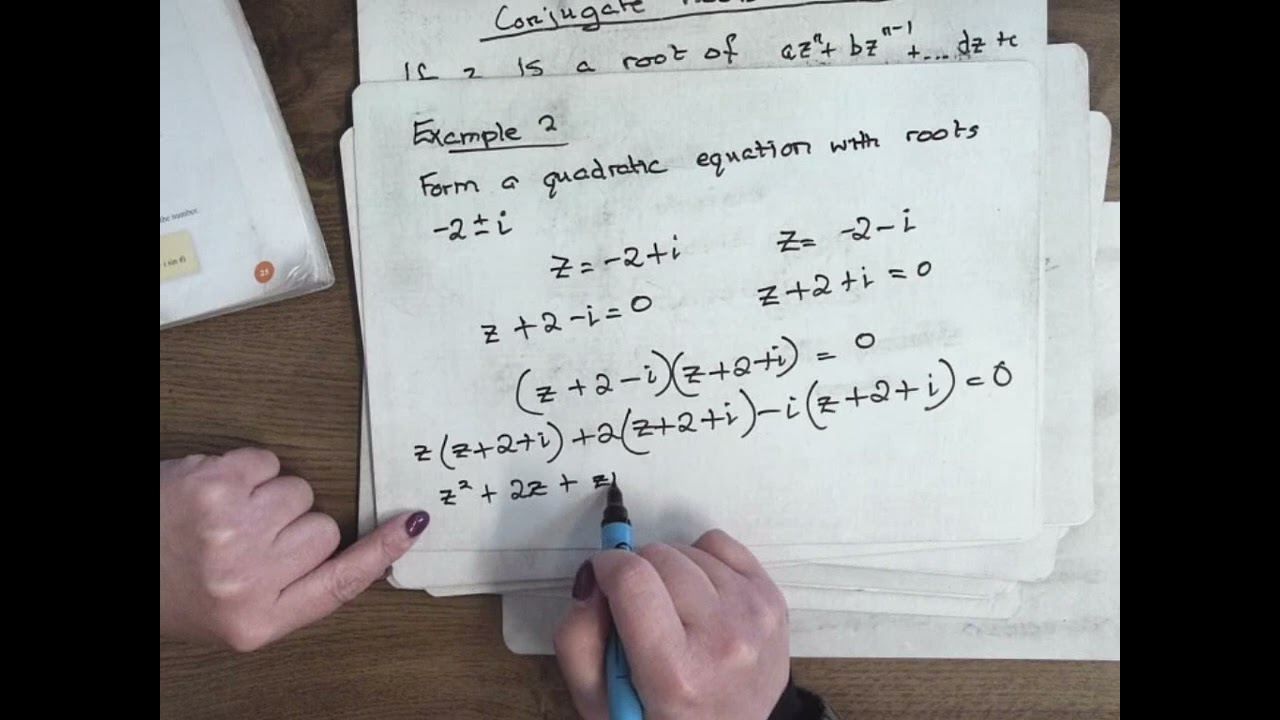 Conjugate
If z is a root of az^n + bz^(n-1) + ... dz + c
Example 2
Form a quadratic equation with roots
-2 ± i
z = -2 + i z = -2 - i
z + 2 - i = 0 z + 2 + i = 0
(z + 2 - i)(z + 2 + i) = 0
z(z + 2 + i) + 2(z + 2 + i) - i(z + 2 + i) = 0
z² + 2z + zi
the number.
i sin θ)
25